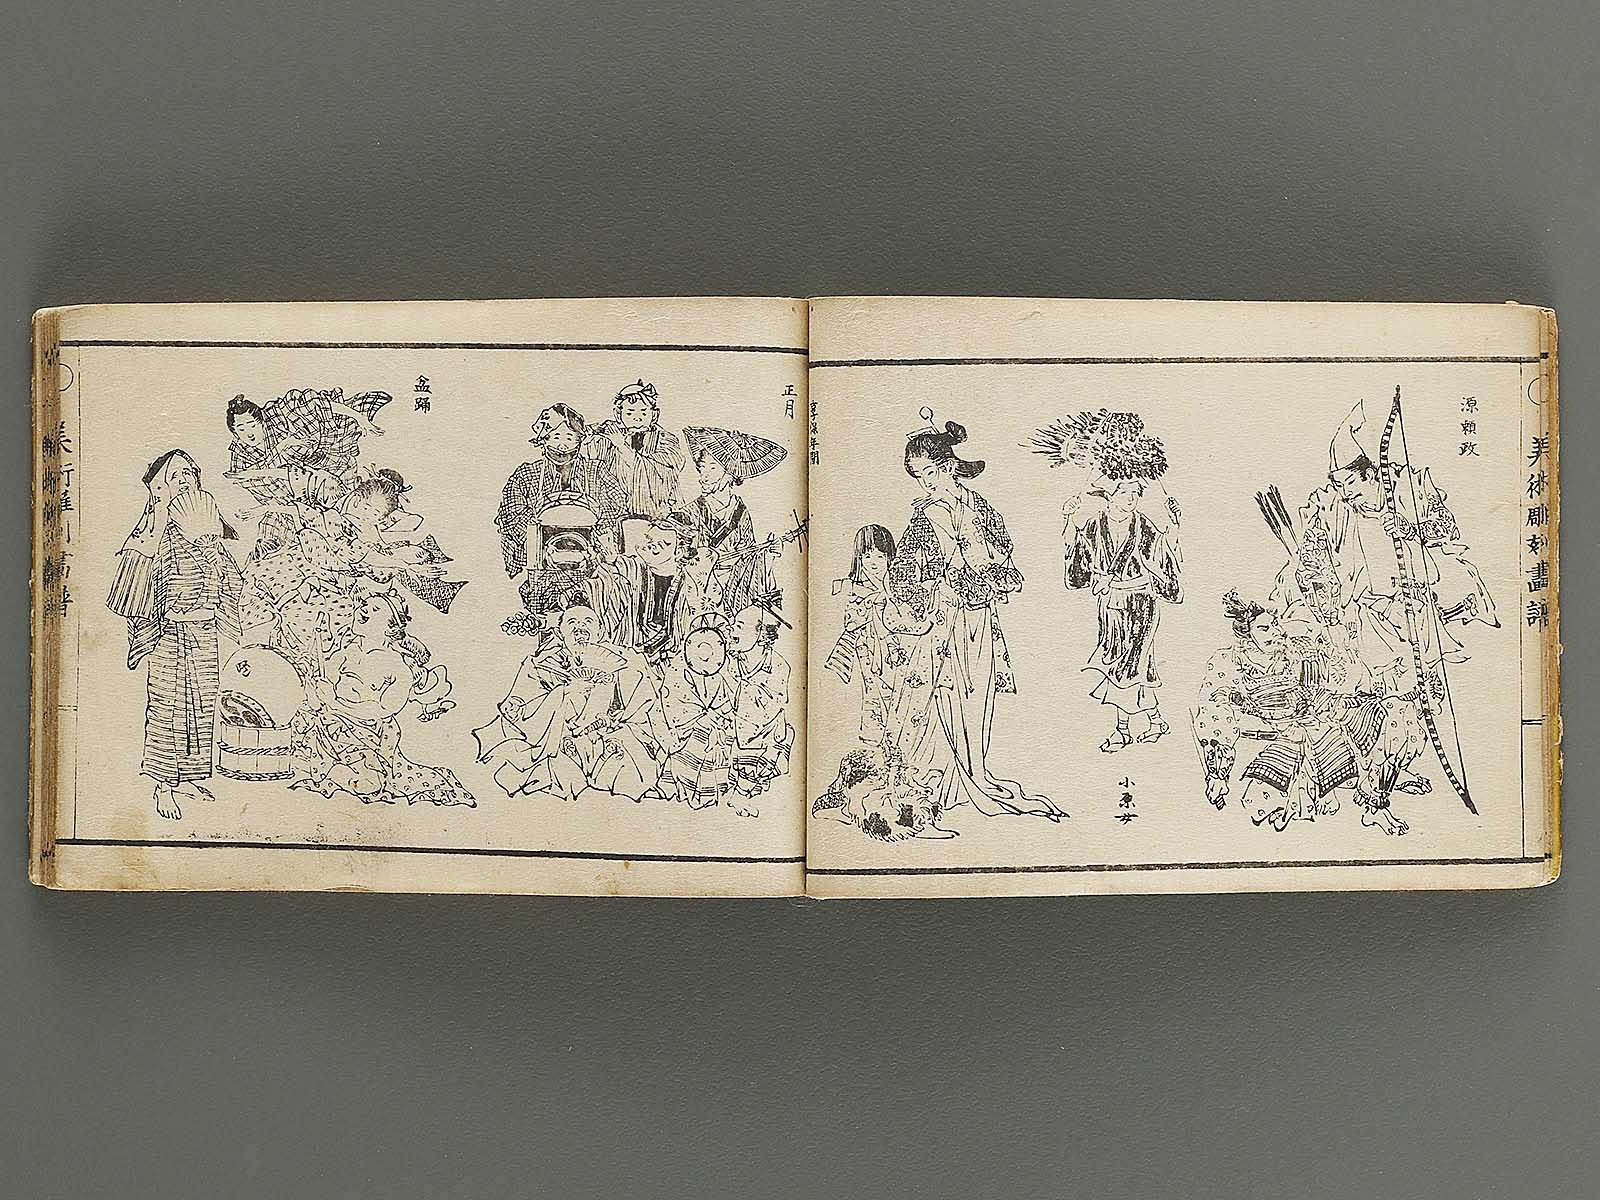 美術彫刻畫譜
源頼政
小原女
享保年間
正月
盆踊
美術雕刻畫譜